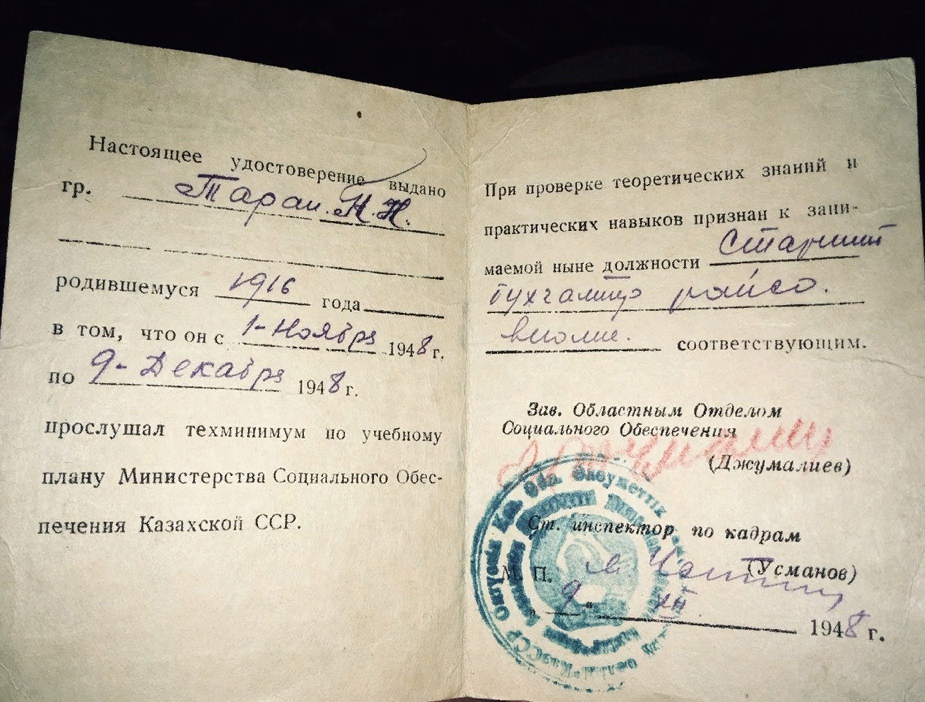 Настоящее удостоверение выдано
гр. Таран Н.Н.
родившемуся 1916 года
в том, что он с 1-Ноября 1948 г.
по 9-Декабря 1948 г.
прослушал техминимум по учебному
плану Министерства Социального Обес-
печения Казахской ССР.
При проверке теоретических знаний и
практических навыков признан к зани-
маемой ныне должности Старший
бухгалтер райсо.
вполне. соответствующим.
Зав. Областным Отделом
Социального Обеспечения
(Джумалиев)
Ст. инспектор по кадрам
М. П. (Усманов)
9 " XII 1948 г.